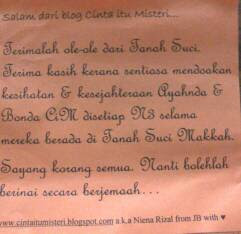 Salam dari blog Cinta itu Misteri...
Terimalah ole-ole dari Tanah Suci.
Terima kasih kerana sentiasa mendoakan
kesihatan & kesejahteraan Ayahnda &
Bonda CiM disetiap N3 selama
mereka berada di Tanah Suci Makkah.
Sayang korang semua. Nanti bolehlah
berinai secara berjemaah...
www.cintaitumisteri.blogspot.com a.k.a Niena Rizal from JB with ♥